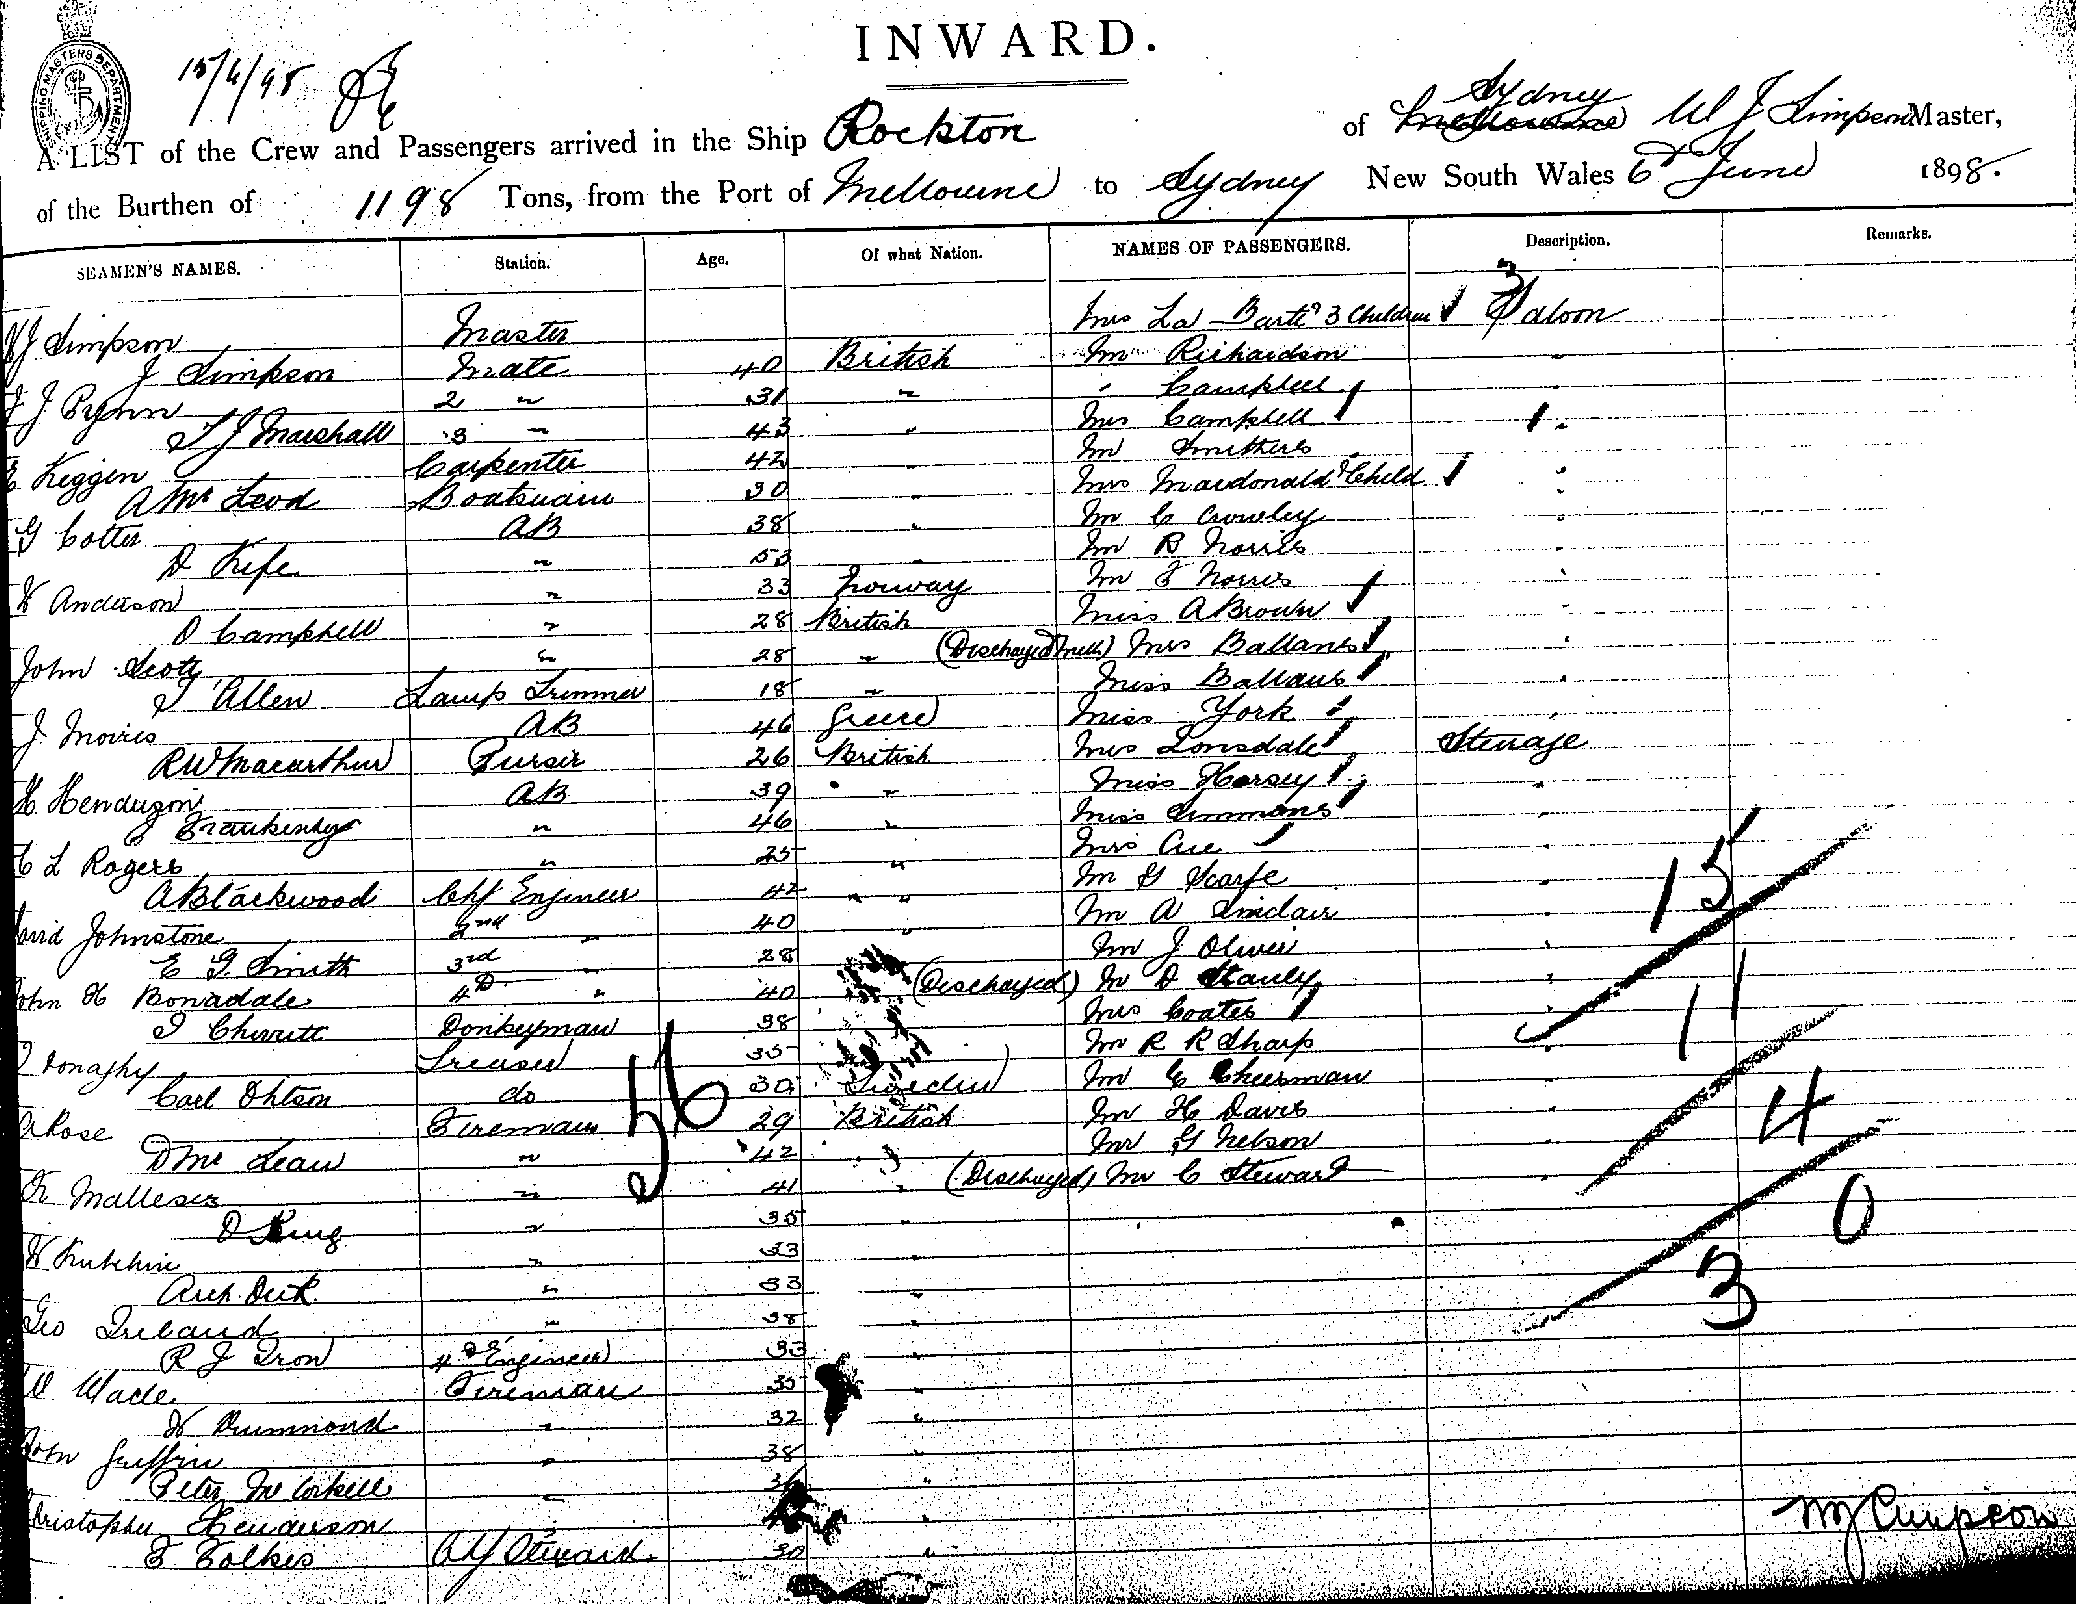 INWARD.
SHIPPING MASTERS DEPARTMENT
15/6/98
Sydney
A LIST of the Crew and Passengers arrived in the Ship Rockton of Melbourne W J Simpson Master,
of the Burthen of 1198 Tons, from the Port of Melbourne to Sydney New South Wales 6th June 1898.
SEAMEN'S NAMES. Station. Age. Of what Nation. NAMES OF PASSENGERS. Description. Remarks.
W J Simpson Master Mrs La Barte & 3 Children 3 Saloon
J Simpson Mate 40 British Mr Richardson "
J Prynn 2 " 31 " " Campbell "
T J Marshall 3 " 43 " Mrs Campbell 1 "
E Keggen Carpenter 42 " Mr Smithers "
A Mc Leod Boatswain 30 " Mrs Macdonald & Child "
G Cotter AB 38 " Mr C Crowley "
D Kefe " 53 " Mr B Norris "
W Anderson " 33 Norway Mr F Norris "
D Campbell " 28 British Miss A Brown "
John Scott " 28 " (Discharged Melb) Mrs Ballans "
T Allen Lamp Trimmer 18 " Miss Ballans "
J Moires AB 46 Greece Miss York "
R W Macarthur Purser 26 British Mrs Lonsdale Steerage
H Henduzon AB 39 " Miss Horsey "
J " 46 " Miss Simmons "
C L Rogers " 25 " Mrs "
A Blackwood Chf Engineer 42 " Mr G Scarfe " 15
David Johnstone 2nd " 40 " Mr A Sinclair "
E G Smith 3rd " 28 Mr J Oliver "
John H Bonadale 4th " 40 (Discharged) Mr D Stanley " 11
T Cherritt Donkeyman 38 Mrs Coates "
Donaghy Greaser 35 Mr R R Sharp "
Carl Ohlson do 30 Sweden Mr C Cheesman "
A Rose Fireman 56 29 British Mr H Davis " 4
D Mc Lean " 42 " Mr G Nelson "
" 41 " (Discharged) Mr C Stewart "
D King " 35 " 0
W " 33
Arch Dick " 33 " 3
Geo Ireland " 38 "
R J Iron 4th Engineer 33 "
W Wade Fireman 35 "
W Drummond " 32 "
John Griffin " 38 "
Peter Mc Corkell " 36 "
Christopher Henderson " "
F Folkes Chf Steward 30 "
W J Simpson